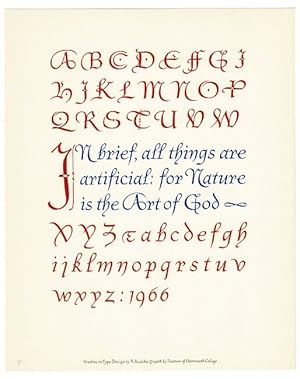 ABCDEFGI
HJKLMNOP
QRSTUVW
IN brief, all things are
artificial: for Nature
is the Art of God
XYZ&abcdefgh
ijklmnopqrstuv
wxyz:1966
Studies in Type Design by R. Ruzicka
Trustees of Dartmouth College